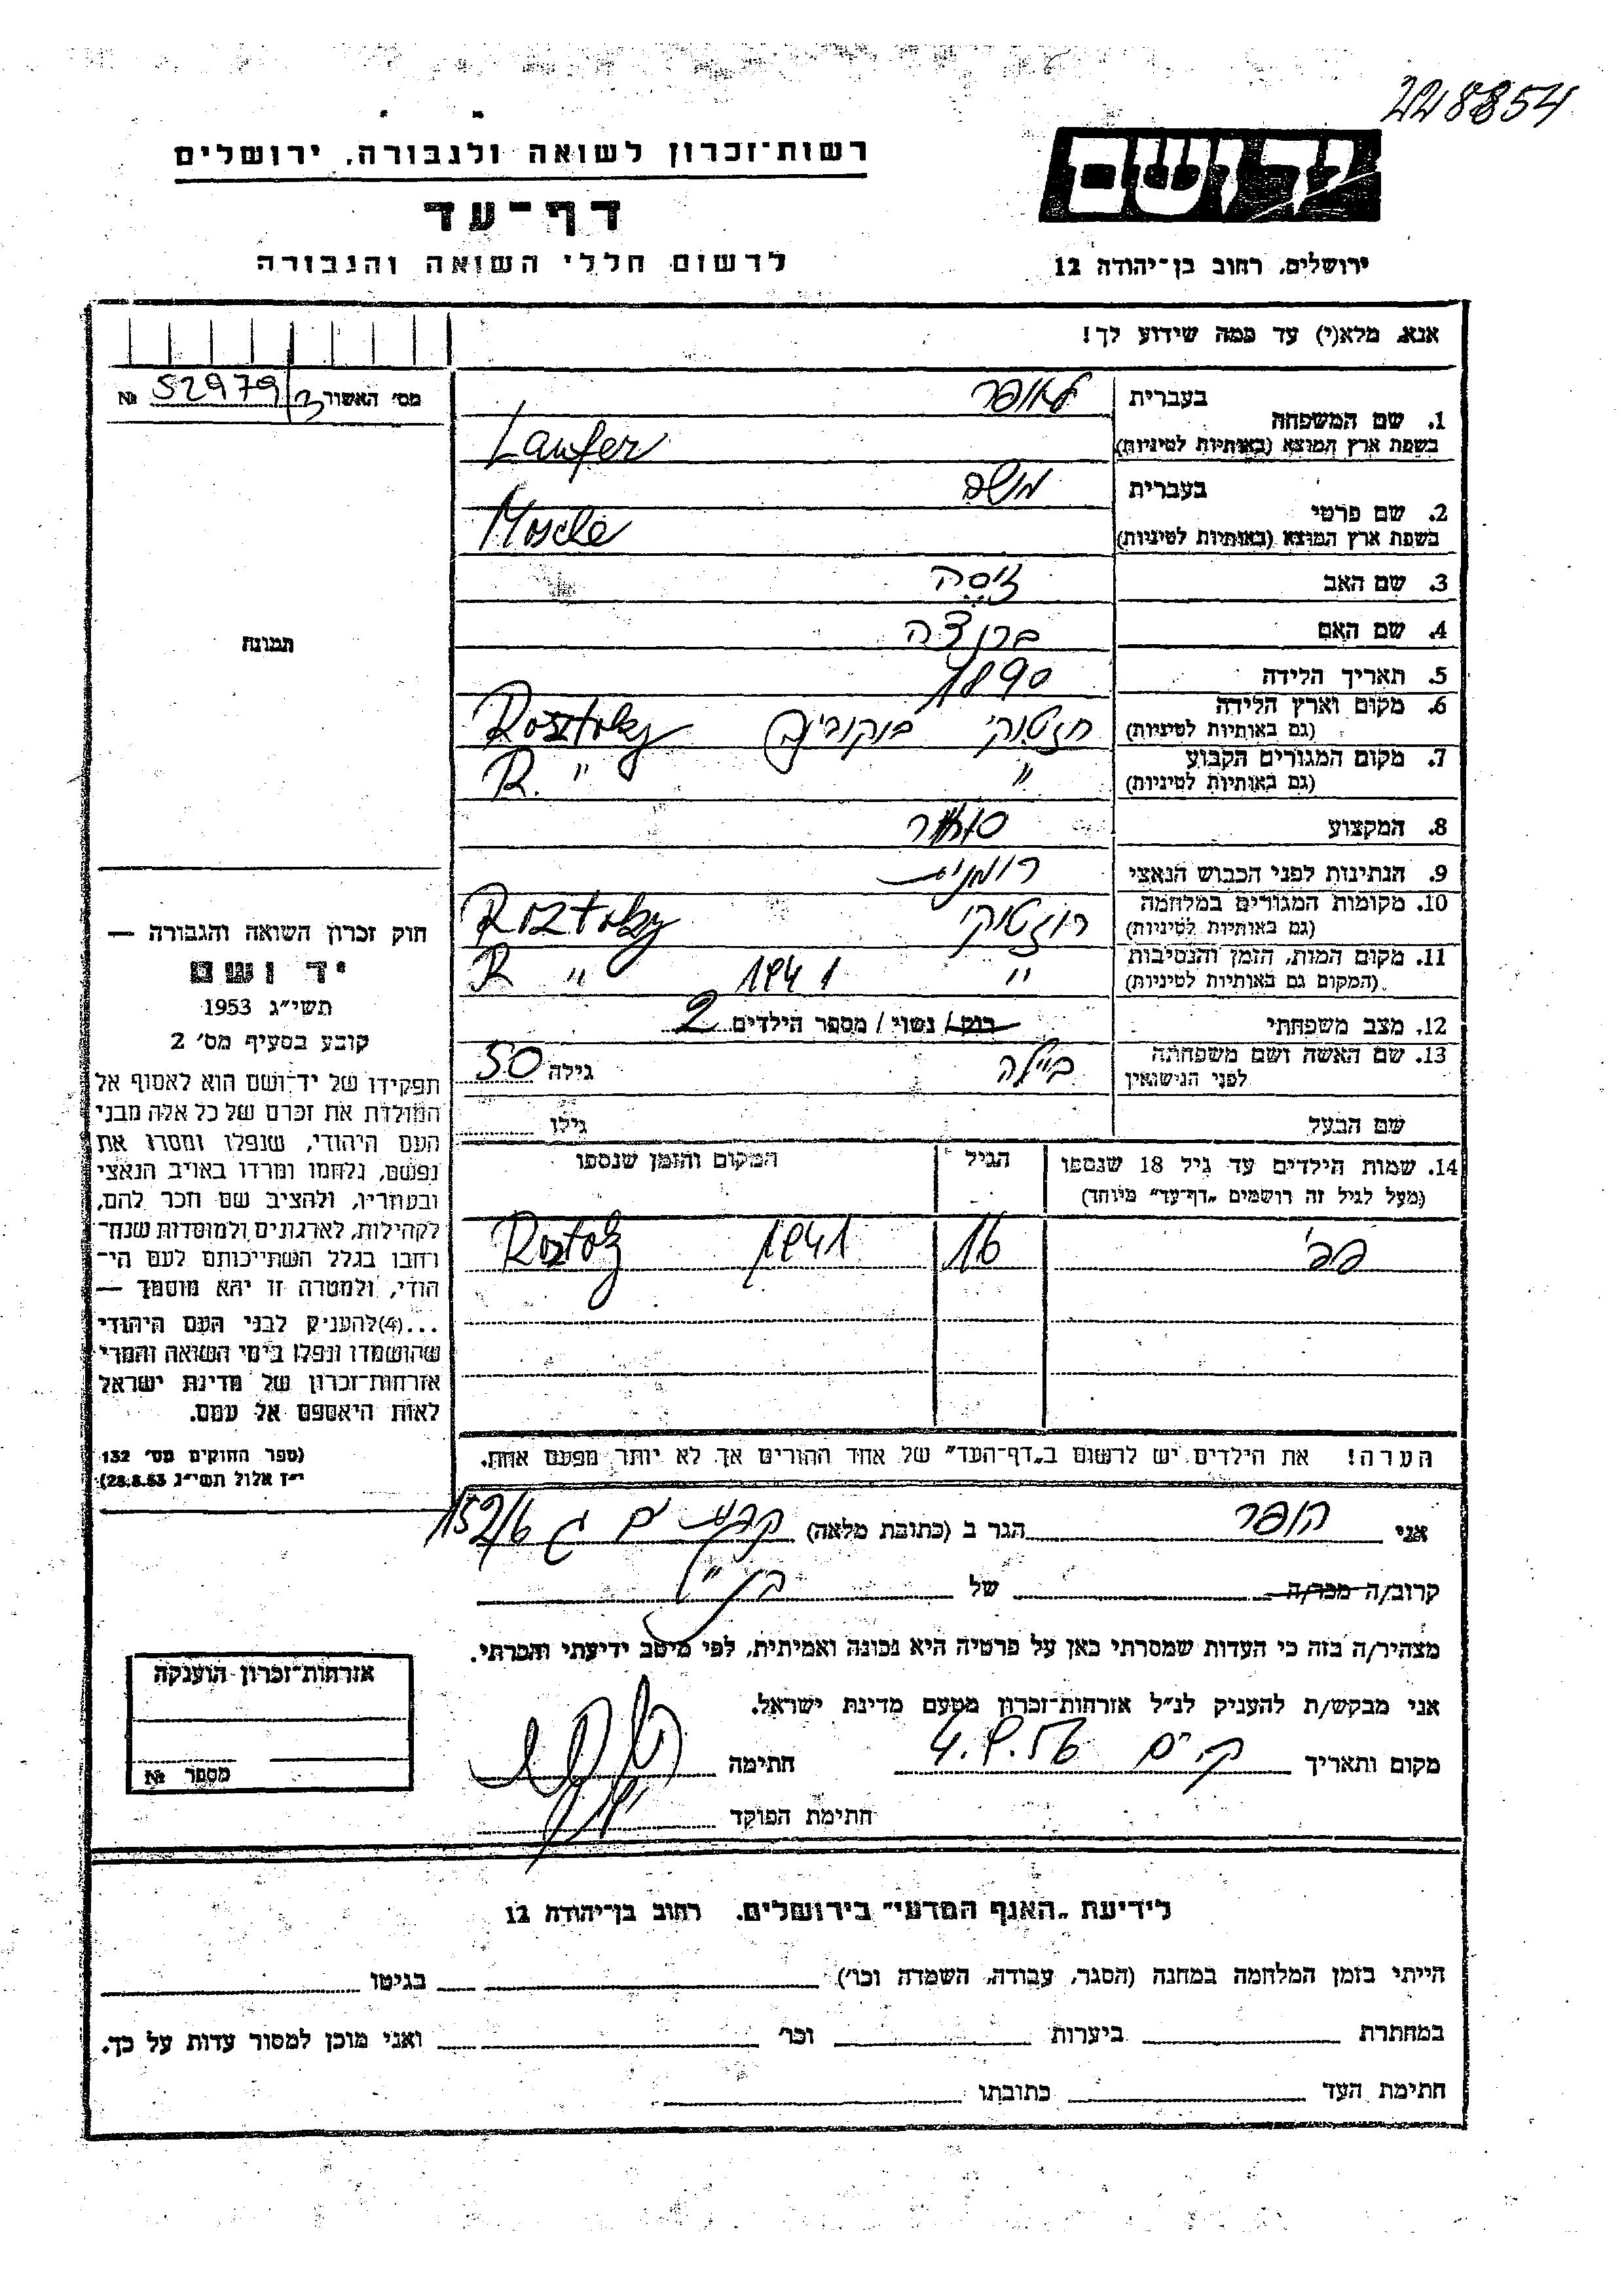 228854
רשות־זכרון לשואה ולגבורה, ירושלים
יד ושם
דף־עד
לרשום חללי השואה והגבורה
ירושלים, רחוב בן־יהודה 12
אנא, מלא(י) עד כמה שידוע לך!
מס' האשור 52979/3 №
1. שם המשפחה בעברית לאופר
בשפת ארץ המוצא (באותיות לטיניות) Laufer
2. שם פרטי בעברית משה
בשפת ארץ המוצא (באותיות לטיניות) Mosche
3. שם האב זיסה
4. שם האם ברנצה
5. תאריך הלידה 1890
6. מקום וארץ הלידה
(גם באותיות לטיניות) רוזטוקי בוקובינה Rosztoky
7. מקום המגורים הקבוע
(גם באותיות לטיניות) " R. "
8. המקצוע סוחר
9. הנתינות לפני הכבוש הנאצי רומנית
10. מקומות המגורים במלחמה
(גם באותיות לטיניות) רוזטוקי Roztoky
11. מקום המות, הזמן והנסיבות
(המקום גם באותיות לטיניות) " 1941 R "
12. מצב משפחתי רווק / נשוי / מספר הילדים 2
13. שם האשה ושם משפחתה
לפני הנישואין ביילה גילה 50
שם הבעל גילו
14. שמות הילדים עד גיל 18 שנספו הגיל המקום והזמן שנספו
(מעל לגיל זה רושמים „דף־עד" מיוחד)
16 1941 Roztoky
הערה! את הילדים יש לרשום ב„דף־העד" של אחד ההורים אך לא יותר מפעם אחת.
תמונה
חוק זכרון השואה והגבורה —
יד ושם
תשי"ג 1953
קובע בסעיף מס' 2
תפקידו של יד־ושם הוא לאסוף אל
המולדת את זכרם של כל אלה מבני
העם היהודי, שנפלו ומסרו את
נפשם, נלחמו ומרדו באויב הנאצי
ובעוזריו, ולהציב שם וזכר להם,
לקהילות, לארגונים ולמוסדות שנח־
רבו בגלל השתייכותם לעם הי־
הודי, ולמטרה זו יהא מוסמך —
...(4) להעניק לבני העם היהודי
שהושמדו ונפלו בימי השואה והמרי
אזרחות־זכרון של מדינת ישראל
לאות היאספם אל עמם.
(ספר החוקים מס' 132
י"ז אלול תשי"ג 28.8.53)
אני הופר הגר ב (כתובת מלאה) 152/6
קרוב/ה מכר/ה של
מצהיר/ה בזה כי העדות שמסרתי כאן על פרטיה היא נכונה ואמיתית, לפי מיטב ידיעתי והכרתי.
אני מבקש/ת להעניק לנ"ל אזרחות־זכרון מטעם מדינת ישראל.
מקום ותאריך ק. ים 4.9.56 חתימה
חתימת הפוקד
אזרחות־זכרון הוענקה
מספר №
לידיעת „האגף המדעי" בירושלים, רחוב בן־יהודה 12
הייתי בזמן המלחמה במחנה (הסגר, עבודה, השמדה וכו') בגיטו
במחתרת ביערות וכו' ואני מוכן למסור עדות על כך.
חתימת העד כתובתו